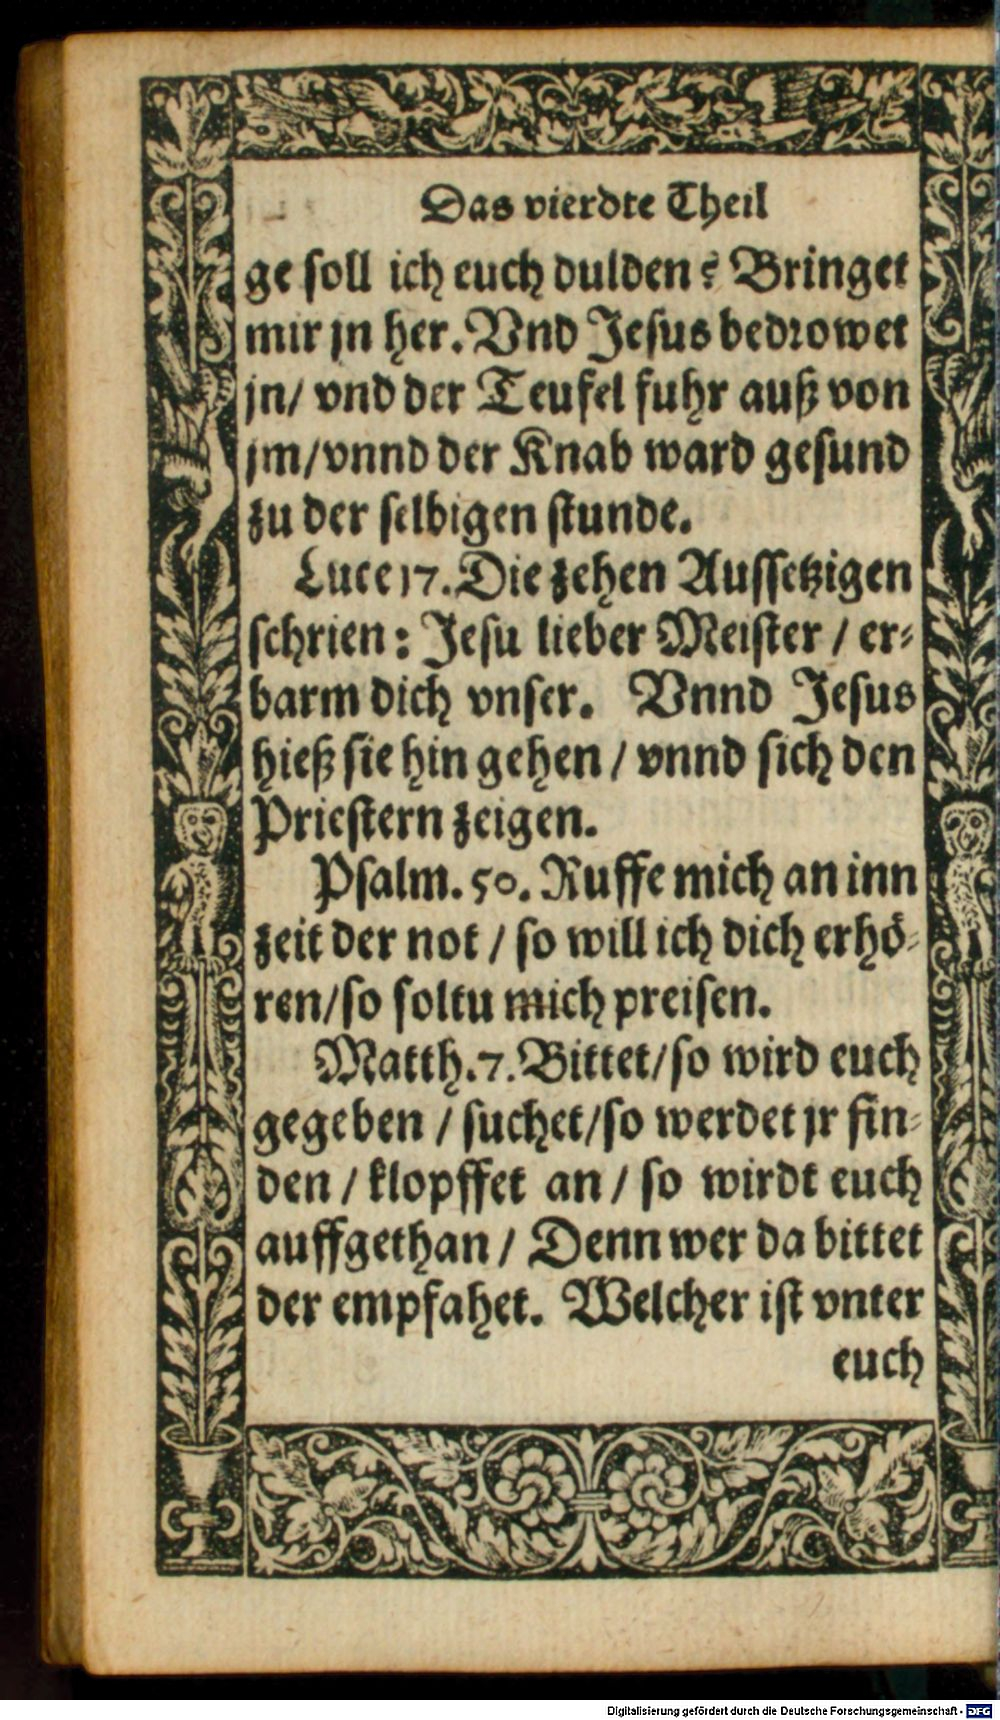 Das vierdte Theil
ge soll ich euch dulden? Bringet
mir jn her. Vnd Jesus bedrowet
jn/ vnd der Teufel fuhr auß von
jm/vnnd der Knab ward gesund
zu der selbigen stunde.
Luce 17. Die zehen Aussetzigen
schrien: Jesu lieber Meister / er-
barm dich vnser. Vnnd Jesus
hieß sie hin gehen / vnnd sich den
Priestern zeigen.
Psalm. 50. Ruffe mich an inn
zeit der not / so will ich dich erhö-
ren/so soltu mich preisen.
Matth. 7. Bittet/so wird euch
gegeben / suchet/so werdet jr fin-
den / klopffet an / so wirdt euch
auffgethan / Denn wer da bittet
der empfahet. Welcher ist vnter
euch
Digitalisierung gefördert durch die Deutsche Forschungsgemeinschaft - DFG